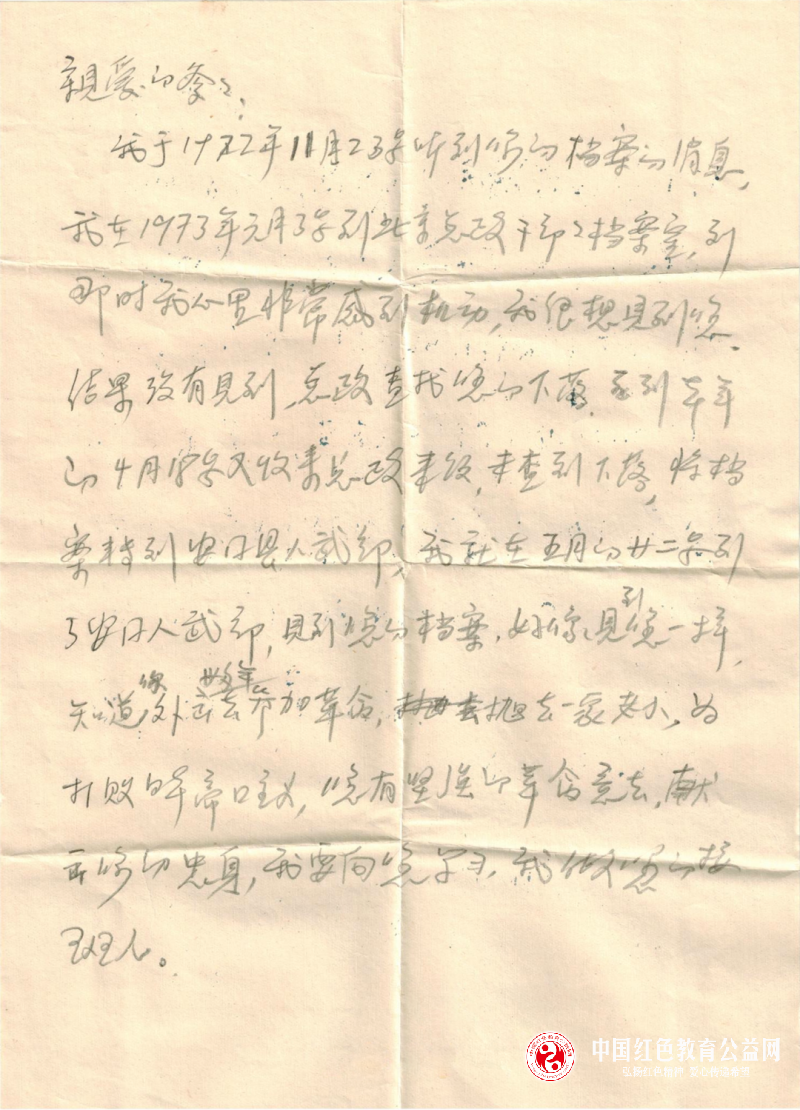 親爱的爹々:
我于1972年11月25号听到您的档案的消息,
我在1973年元月3号到北京总政干部々档案室,到
那时我心里非常感到机动,我很想見到您,
结果没有見到,总政查找您的下落,到去年
的4月18号又收来总政来纸,未查到下落,将档
案转到安口县人武部,我就在五月的廿二号到
了安口人武部,見到您的档案,好像見到您一样,
知道你外去参加革命,抛去一家老小,为
打败日本帝口主义,您有坚强的革命意志,献
出您的忠身,我要向您学习,我做您的接
班人。
中国红色教育公益网